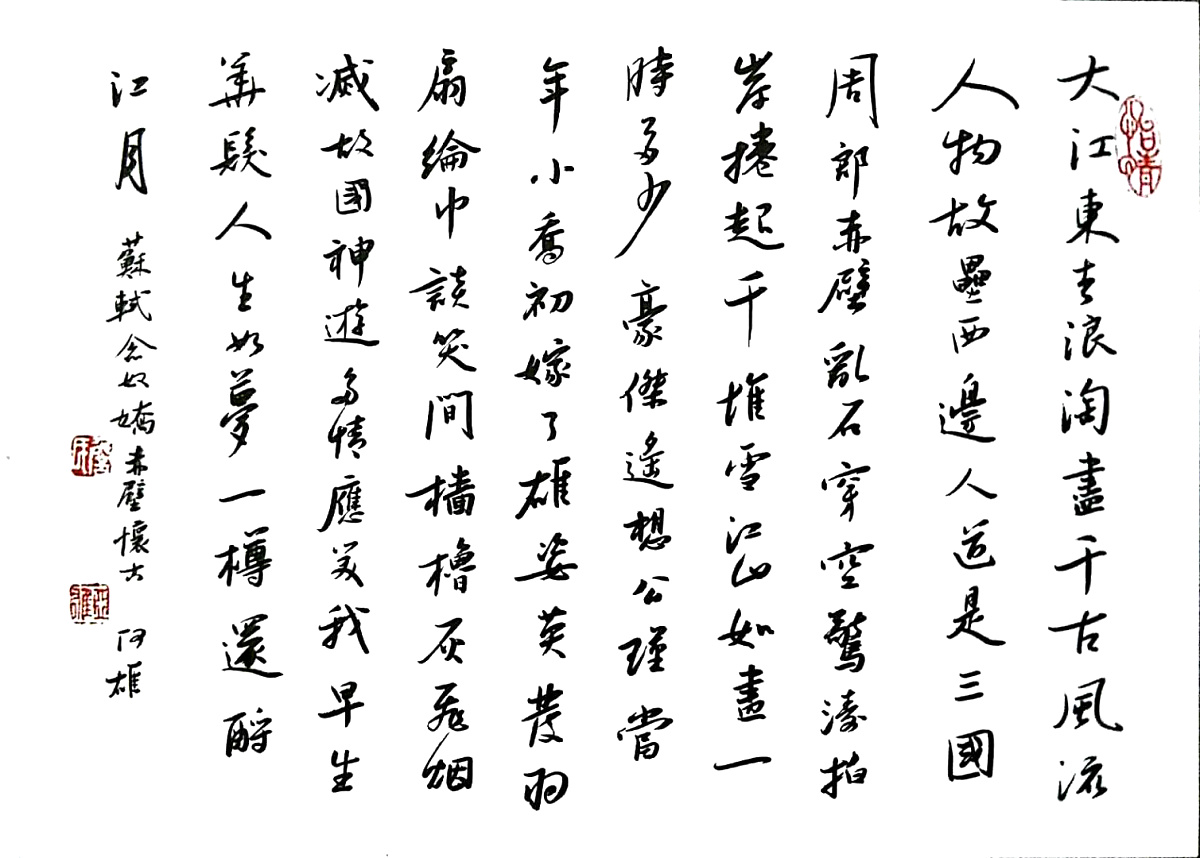 大江東去浪淘盡千古風流
人物故壘西邊人道是三國
周郎赤壁亂石穿空驚濤拍
岸捲起千堆雪江山如畫一
時多少豪傑遙想公瑾當
年小喬初嫁了雄姿英發羽
扇綸巾談笑間檣櫓灰飛烟
滅故國神遊多情應笑我早生
華髮人生如夢一樽還酹
江月
蘇軾念奴嬌赤壁懷古 阿雄
怡情